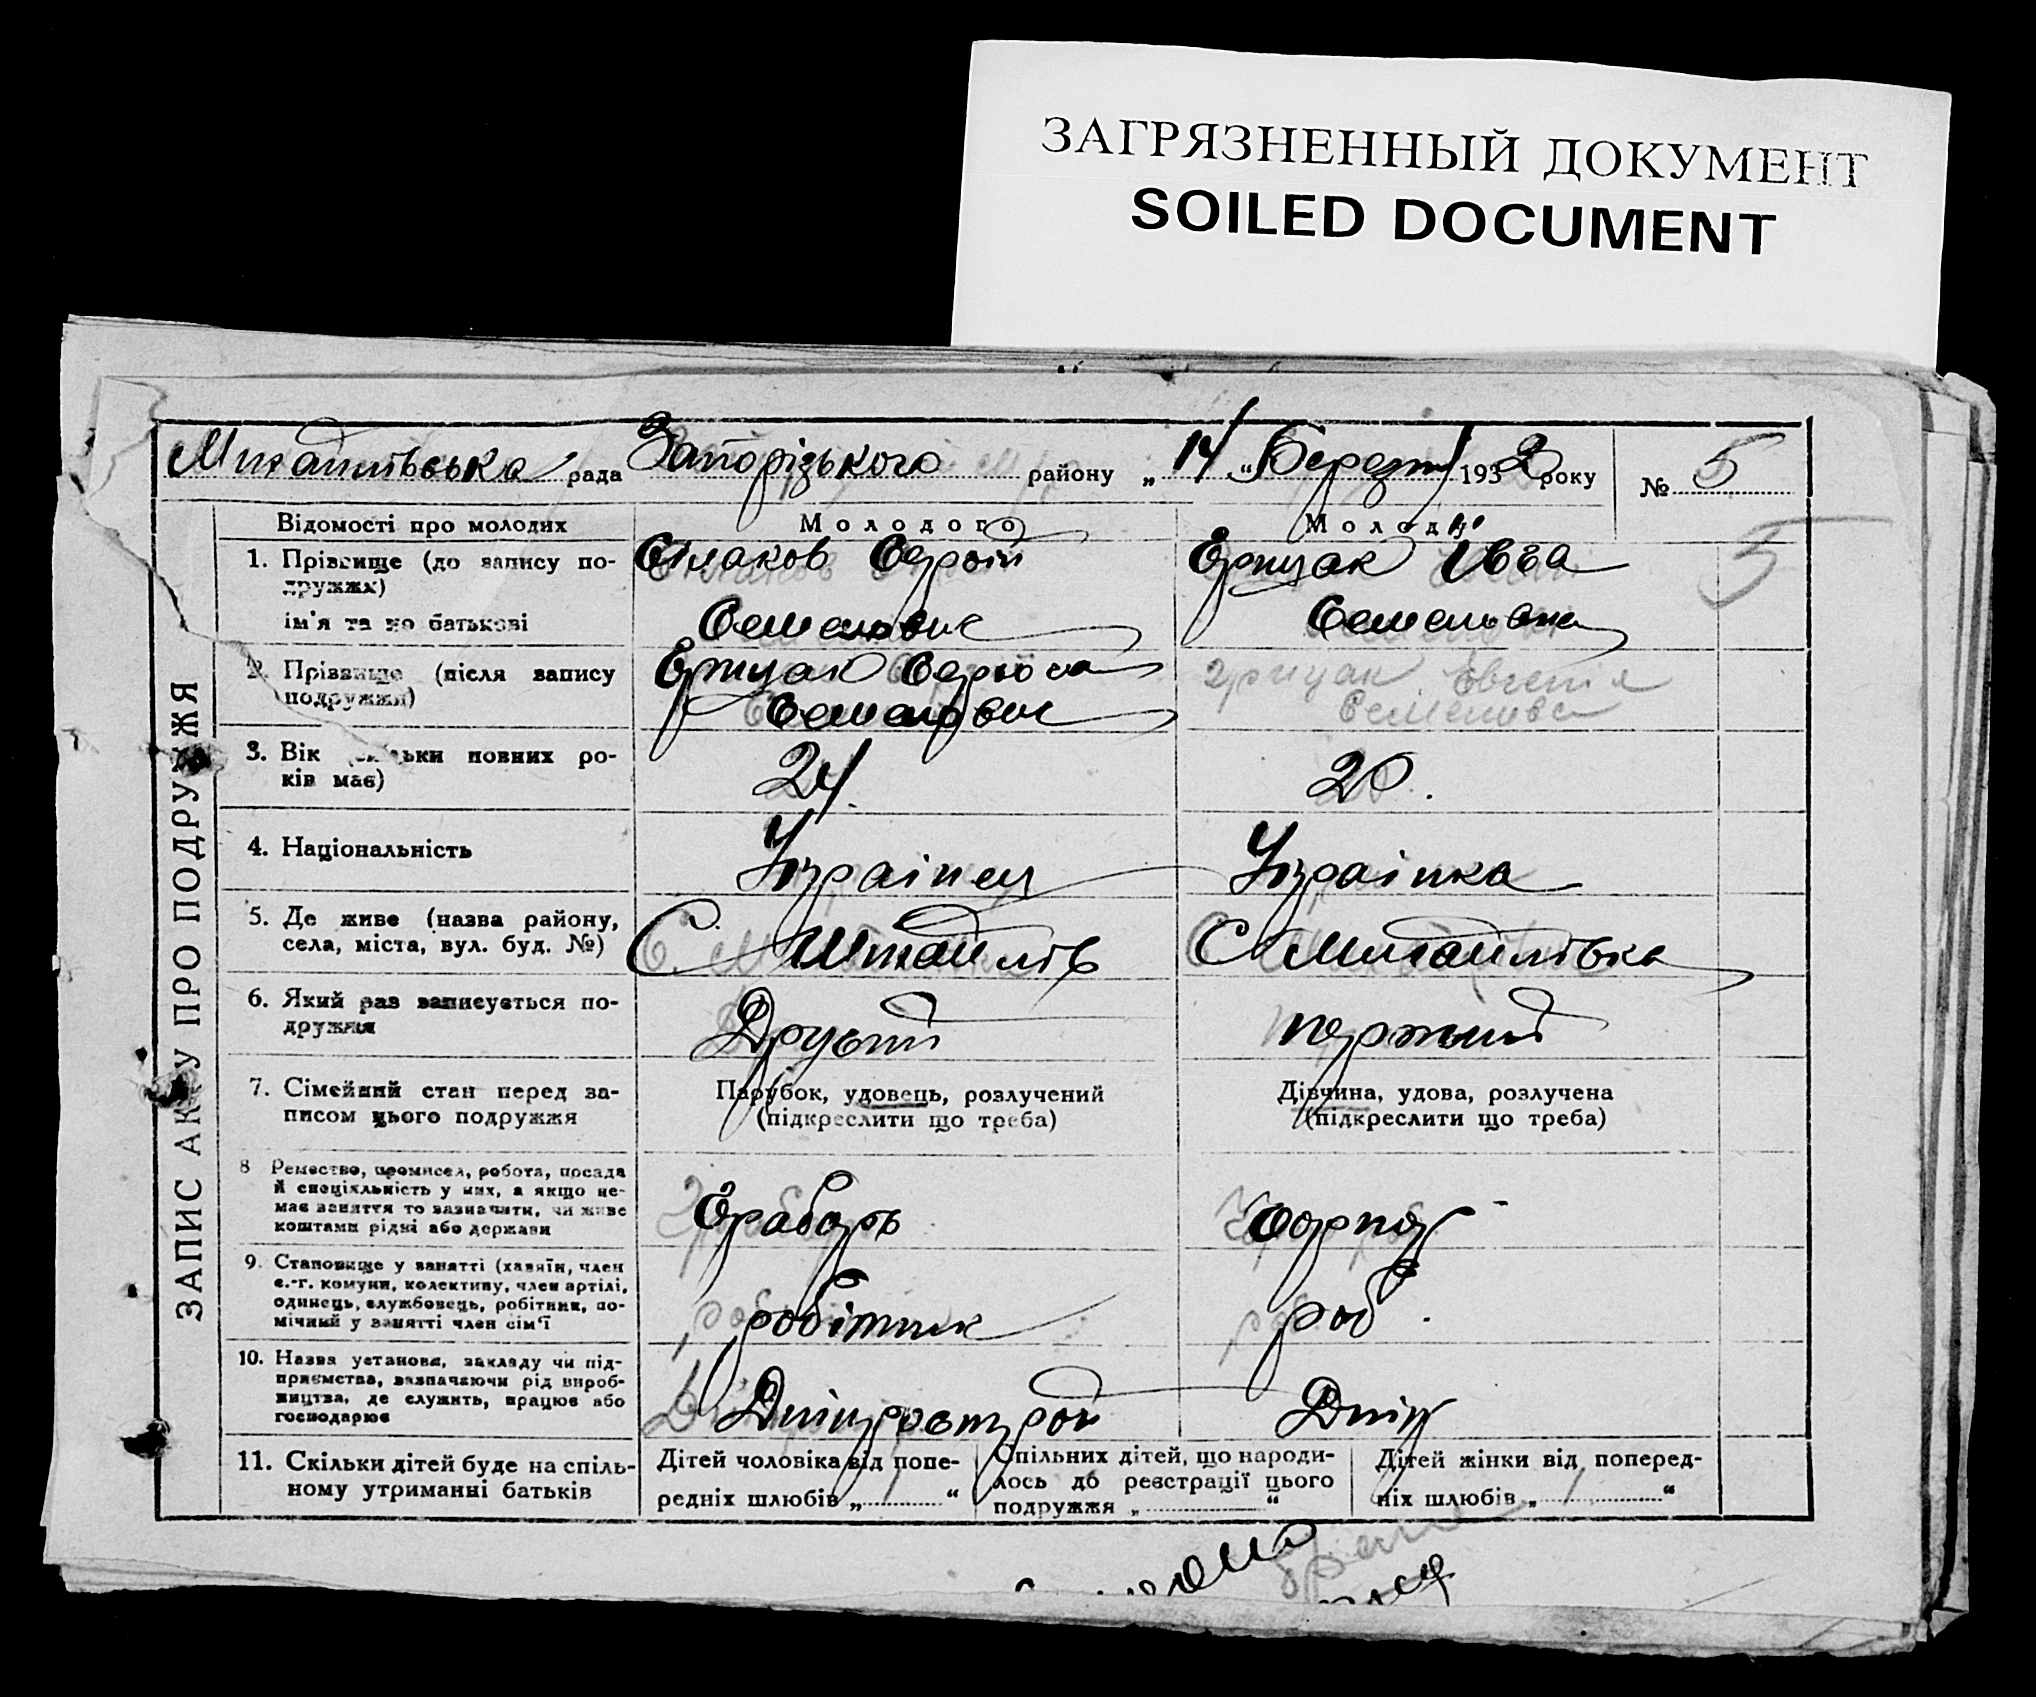 ЗАГРЯЗНЕННЫЙ ДОКУМЕНТ
SOILED DOCUMENT
Михайлівська рада Запорізького району „ 14 " Березня 1932 року № 5
Відомості про молодих
Молодого
Молодої
5
1. Прізвище (до запису по-
дружжя)
ім'я та по батькові
Єрицак Івга
Семенович
Семеновна
2. Прізвище (після запису
подружжя)
Єрицак
Семенович
Єрицак Евгенія
3. Вік (скільки повних ро-
ків має)
24.
20.
4. Національність
Українец
Українка
5. Де живе (назва району,
села, міста, вул. буд. №)
С. Михайлів
С. Михайлівка
6. Який раз записується по-
дружжя
Другий
первий
7. Сімейний стан перед за-
писом цього подружжя
Парубок, удовець, розлучений
(підкреслити що треба)
Дівчина, удова, розлучена
(підкреслити що треба)
8 Ремество, промисел, робота, посада
й спеціяльність у них, а якщо не-
має заняття то зазначити, чи живе
коштами рідні або держави
9. Становище у занятті (хазяїн, член
с.-г. комуни, колективу, член артілі,
одинець, службовець, робітник, по-
мічний у занятті член сім'ї
робітник
роб.
10. Назва установи, закладу чи під-
приємства, зазначаючи рід вироб-
ництва, де служить, працює або
господарює
Дніпрострой
Дніп
11. Скільки дітей буде на спіль-
ному утриманні батьків
Дітей чоловіка від попе-
редніх шлюбів „ "
Спільних дітей, що народи-
лось до реєстрації цього
подружжя „ "
Дітей жінки від поперед-
ніх шлюбів „ "
ЗАПИС АКТУ ПРО ПОДРУЖЖЯ